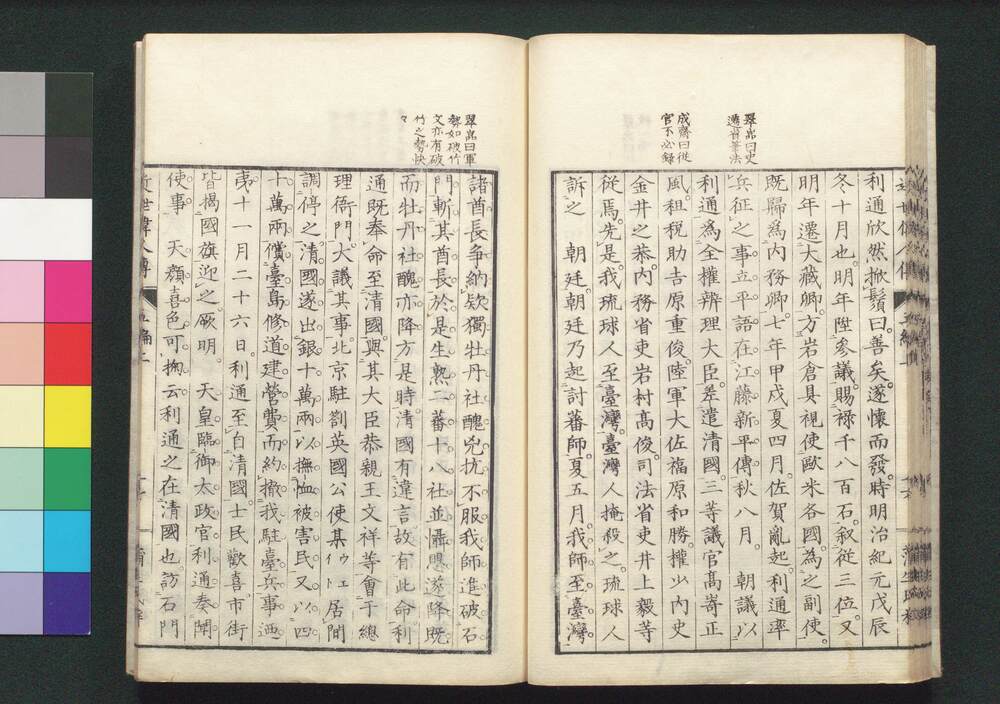 翠嵓曰史
遷省筆法
成齋曰從
官不必録
利通欣然掀鬚曰。善矣。遂懷而發。時明治紀元戊辰
冬十月也。明年陞參議。賜祿千八百石。叙從三位。又
明年遷大藏卿。方岩倉具視使歐米各國。爲之副使。
既歸爲内務卿。七年甲戌夏四月。佐賀亂起。利通率
兵征之。事並平。語在江藤新平傳。秋八月。朝議以
利通爲全權辨理大臣。差遣清國。三等議官高崎正
風。租税助吉原重俊。陸軍大佐福原和勝。權少内史
金井之恭。内務省吏岩村高俊。司法省吏井上毅等
從焉。先是。我琉球人至臺灣。臺灣人掩殺之。琉球人
訴之 朝廷。朝廷乃起討蕃師。夏五月。我師至臺灣。
翠嵓曰軍
勢如破竹
文亦有破
竹之勢快
々
諸酋長爭納欵。獨牡丹社醜兇抗不服。我師進破石
門。斬其酋長。於是生熟二蕃十八社並懾慴遂降。既
而牡丹社醜亦降。方是時清國有違言。故有此命。利
通既奉命至清國。與其大臣恭親王文祥等會于總
理衙門。大議其事。北京駐劄英國公使某ウエイト居間
調停之。清國遂出銀十萬兩以撫恤被害民。又以四
十萬兩償臺島修道建營費。而約撤我駐臺兵。事洒
夷。十一月二十六日。利通至自清國。士民歡喜。市街
皆揭國旗迎之。厥明。 天皇臨御太政官。利通奏聞
使事。 天顏喜色。可掬云。利通之在清國也。訪石門
近世偉人傳